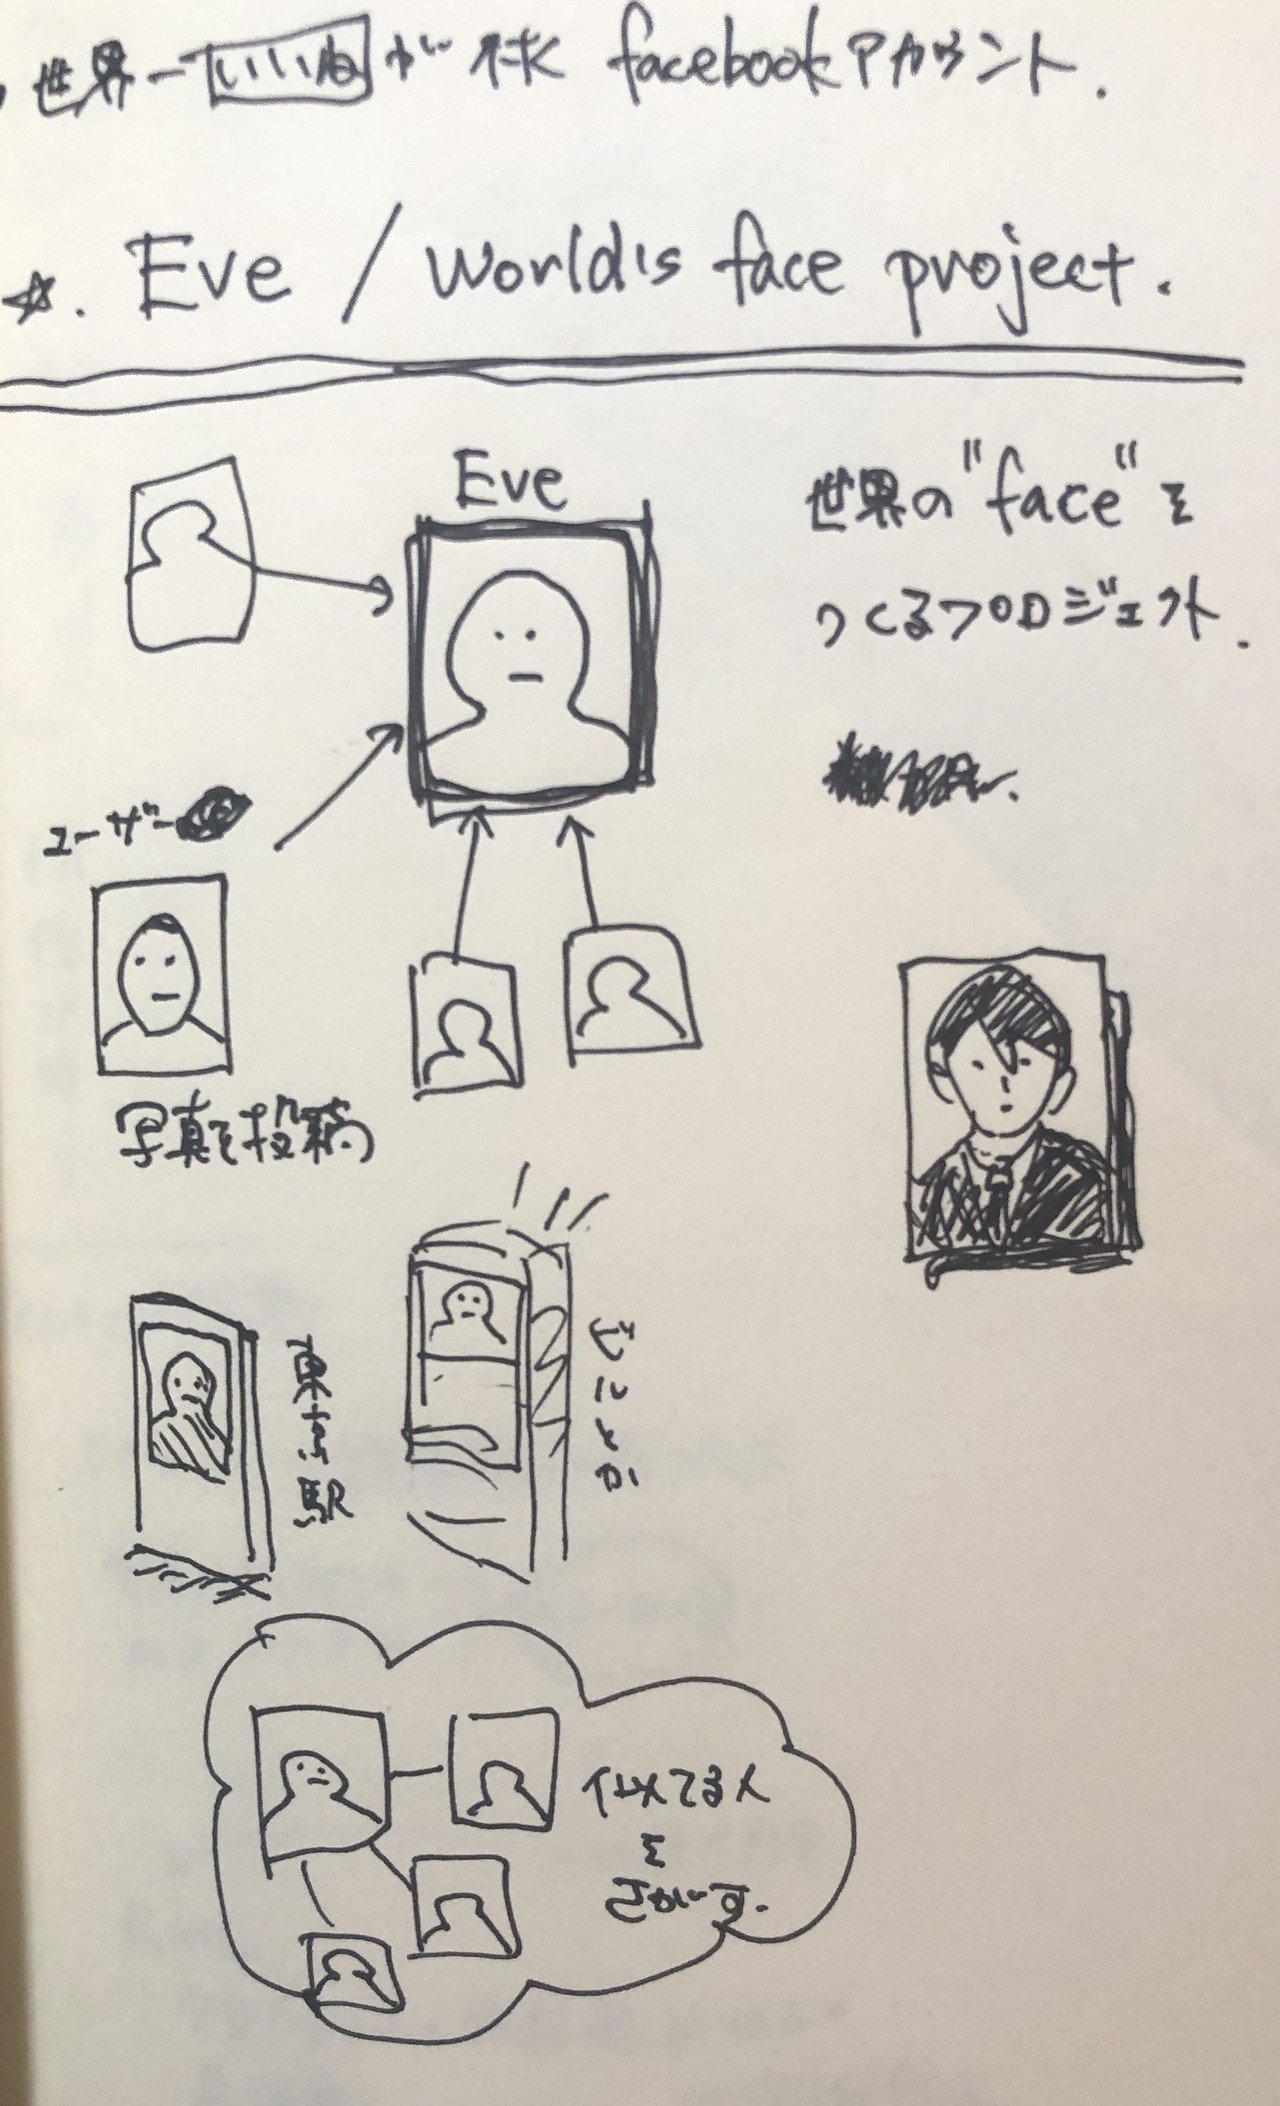 世界一いいねが来た facebookアカウント.
☆. Eve / World's face project.
Eve
世界の"face"を
つくるプロジェクト.
ユーザー
写真を投稿
駅
どこか
似てる人
を
さがす.